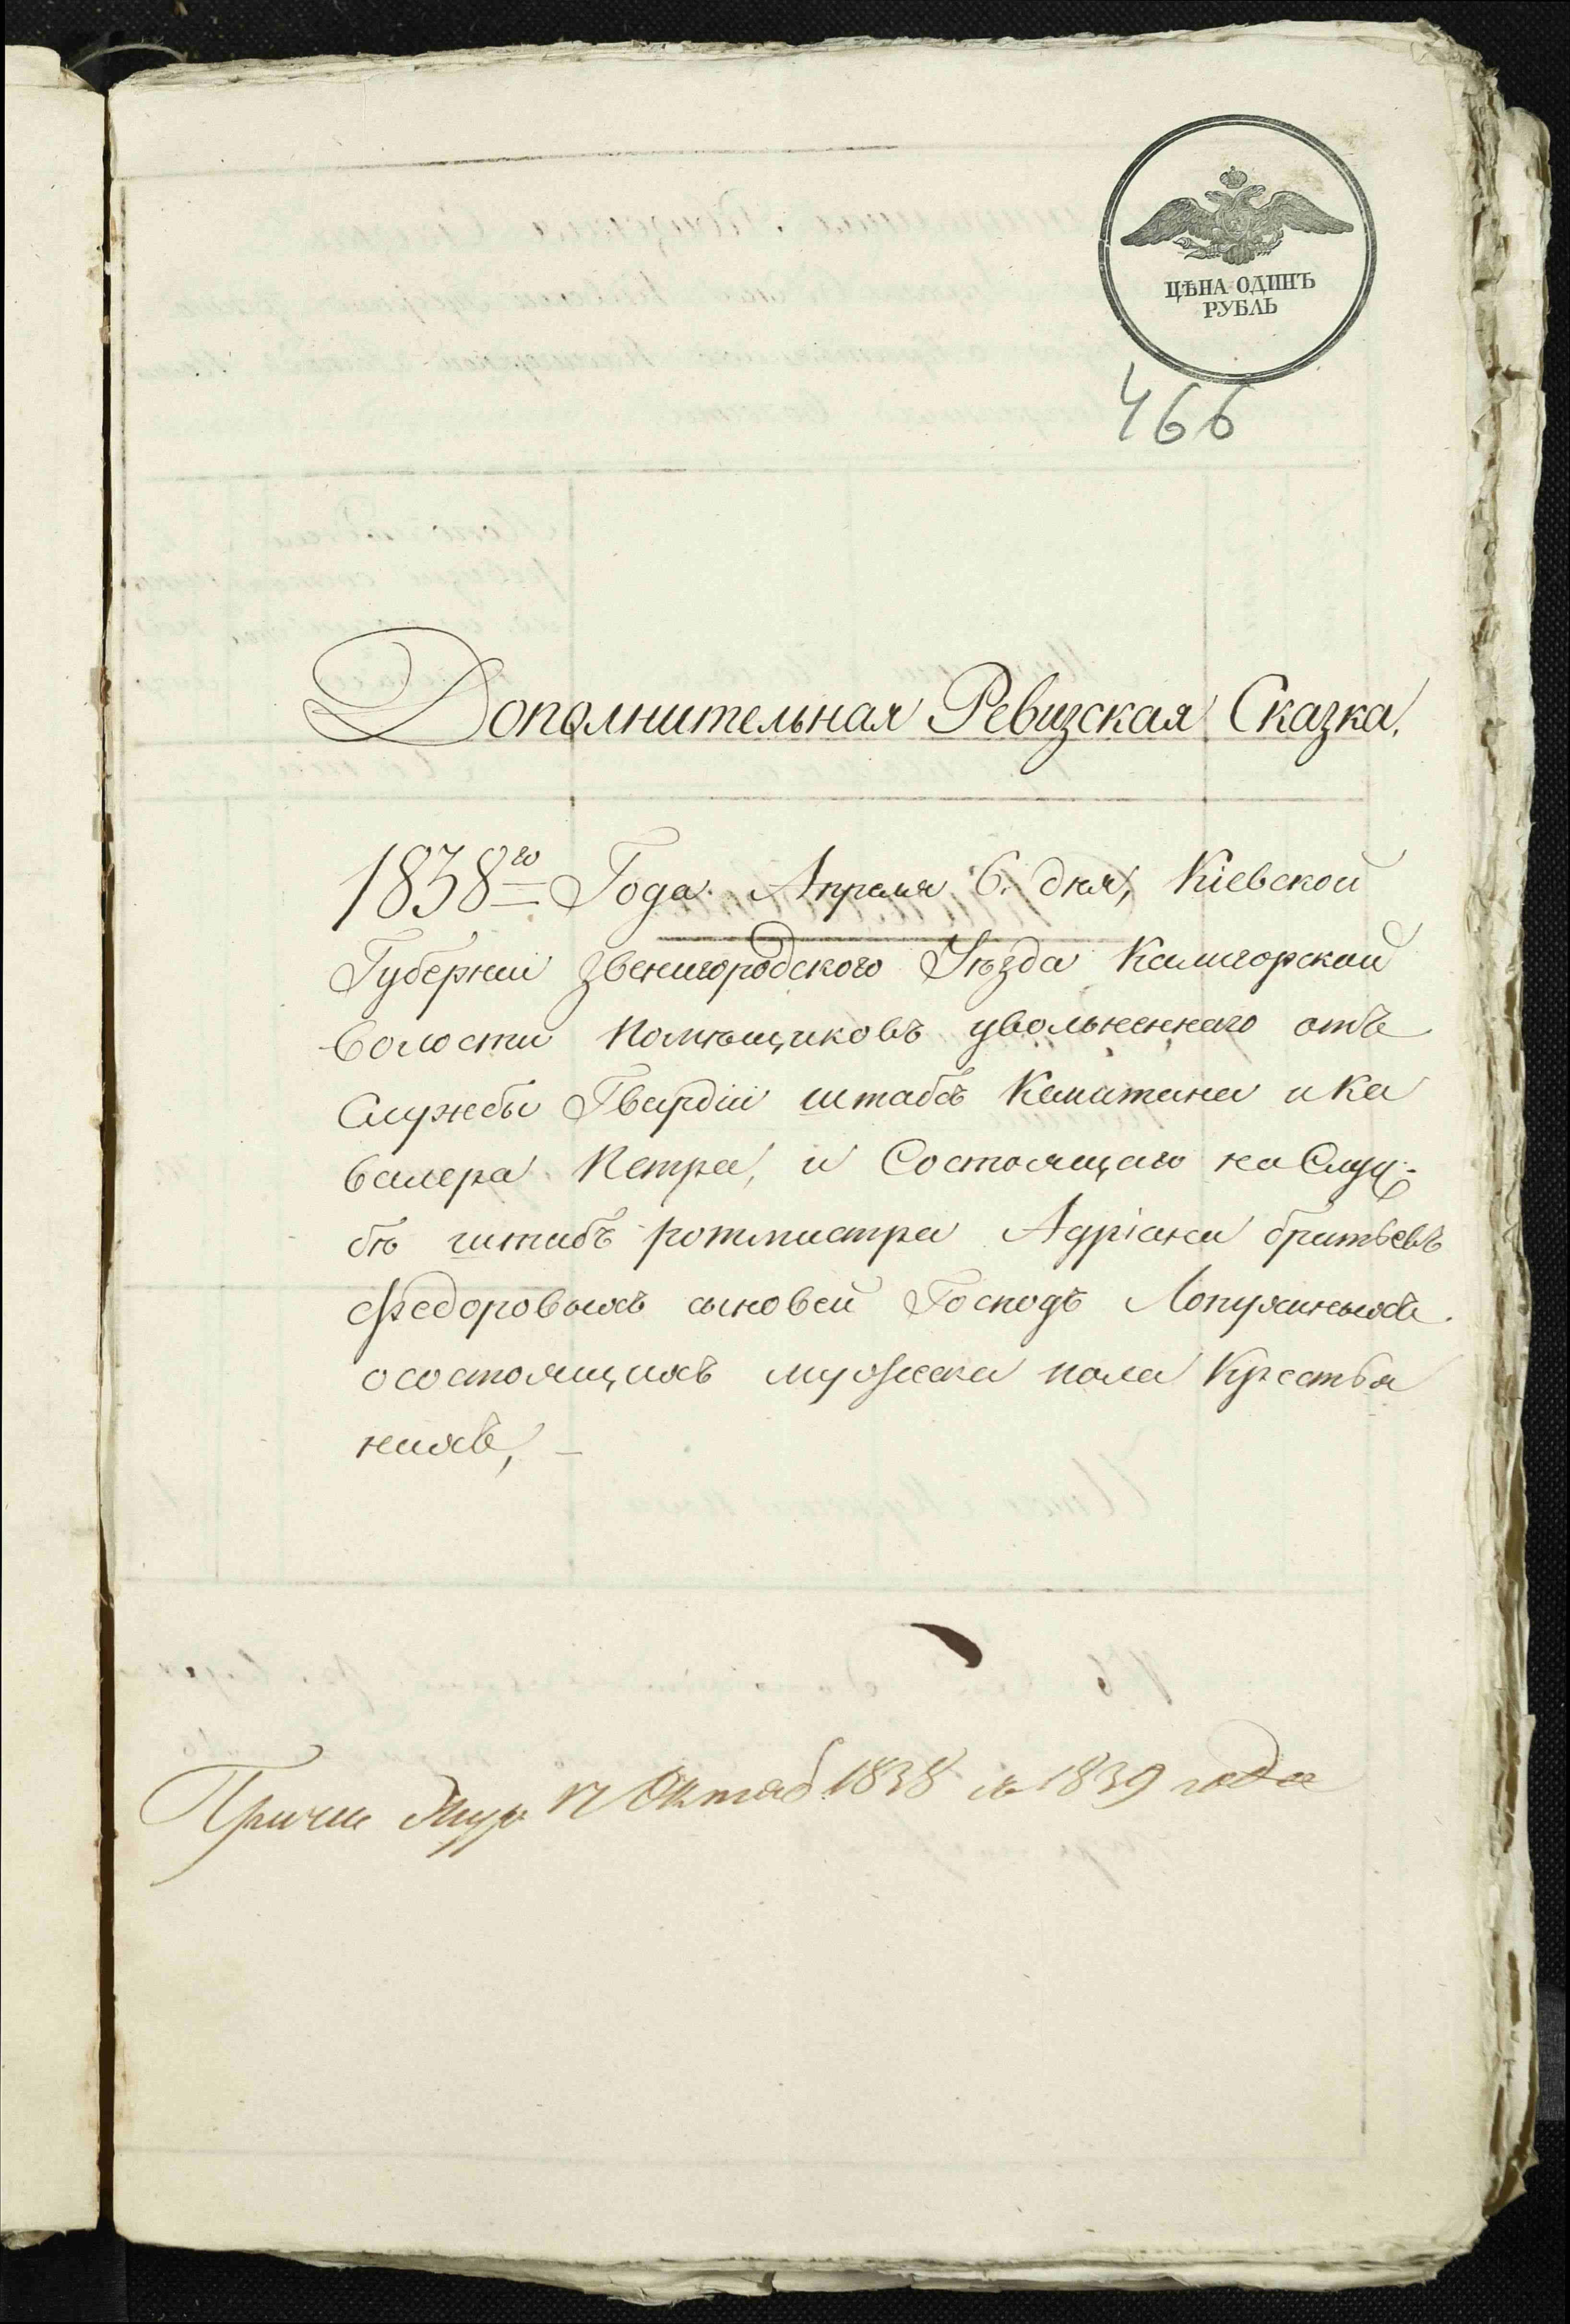 ЦѢНА ОДИНЪ
РУБЛЬ
466
Дополнительная Ревизская Сказка.
1838го Года Апреля 6. дня, Кіевской
Губерніи Звенигородского Уѣзда Калигорской
волости помѣщиковъ уволненнаго отъ
Службы Гвардіи штабсъ Капитана и Ка
валера Петра, и Состоящаго на Служ-
бѣ штабъ ротмистра Адріана братьевъ
Федоровыхъ сыновей Господъ Лопухиныхъ
о состоящихъ мужеска пола Крестья
нахъ, –
17 Октяб 1838 1839 года